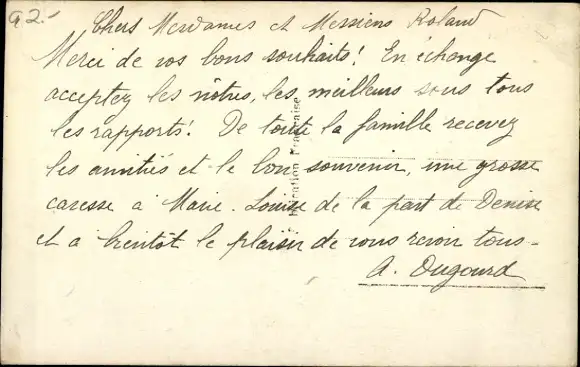 92-
Chers Mesdames et Messieurs Roland
Merci de vos bons souhaits! En échange
acceptez les nôtres, les meilleurs sous tous
les rapports! De toute la famille recevez
les amitiés et le bon souvenir, une grosse
caresse à Marie-Louise de la part de Denise
et à bientôt le plaisir de vous revoir tous-
A. Dugourd
Fabrication Française